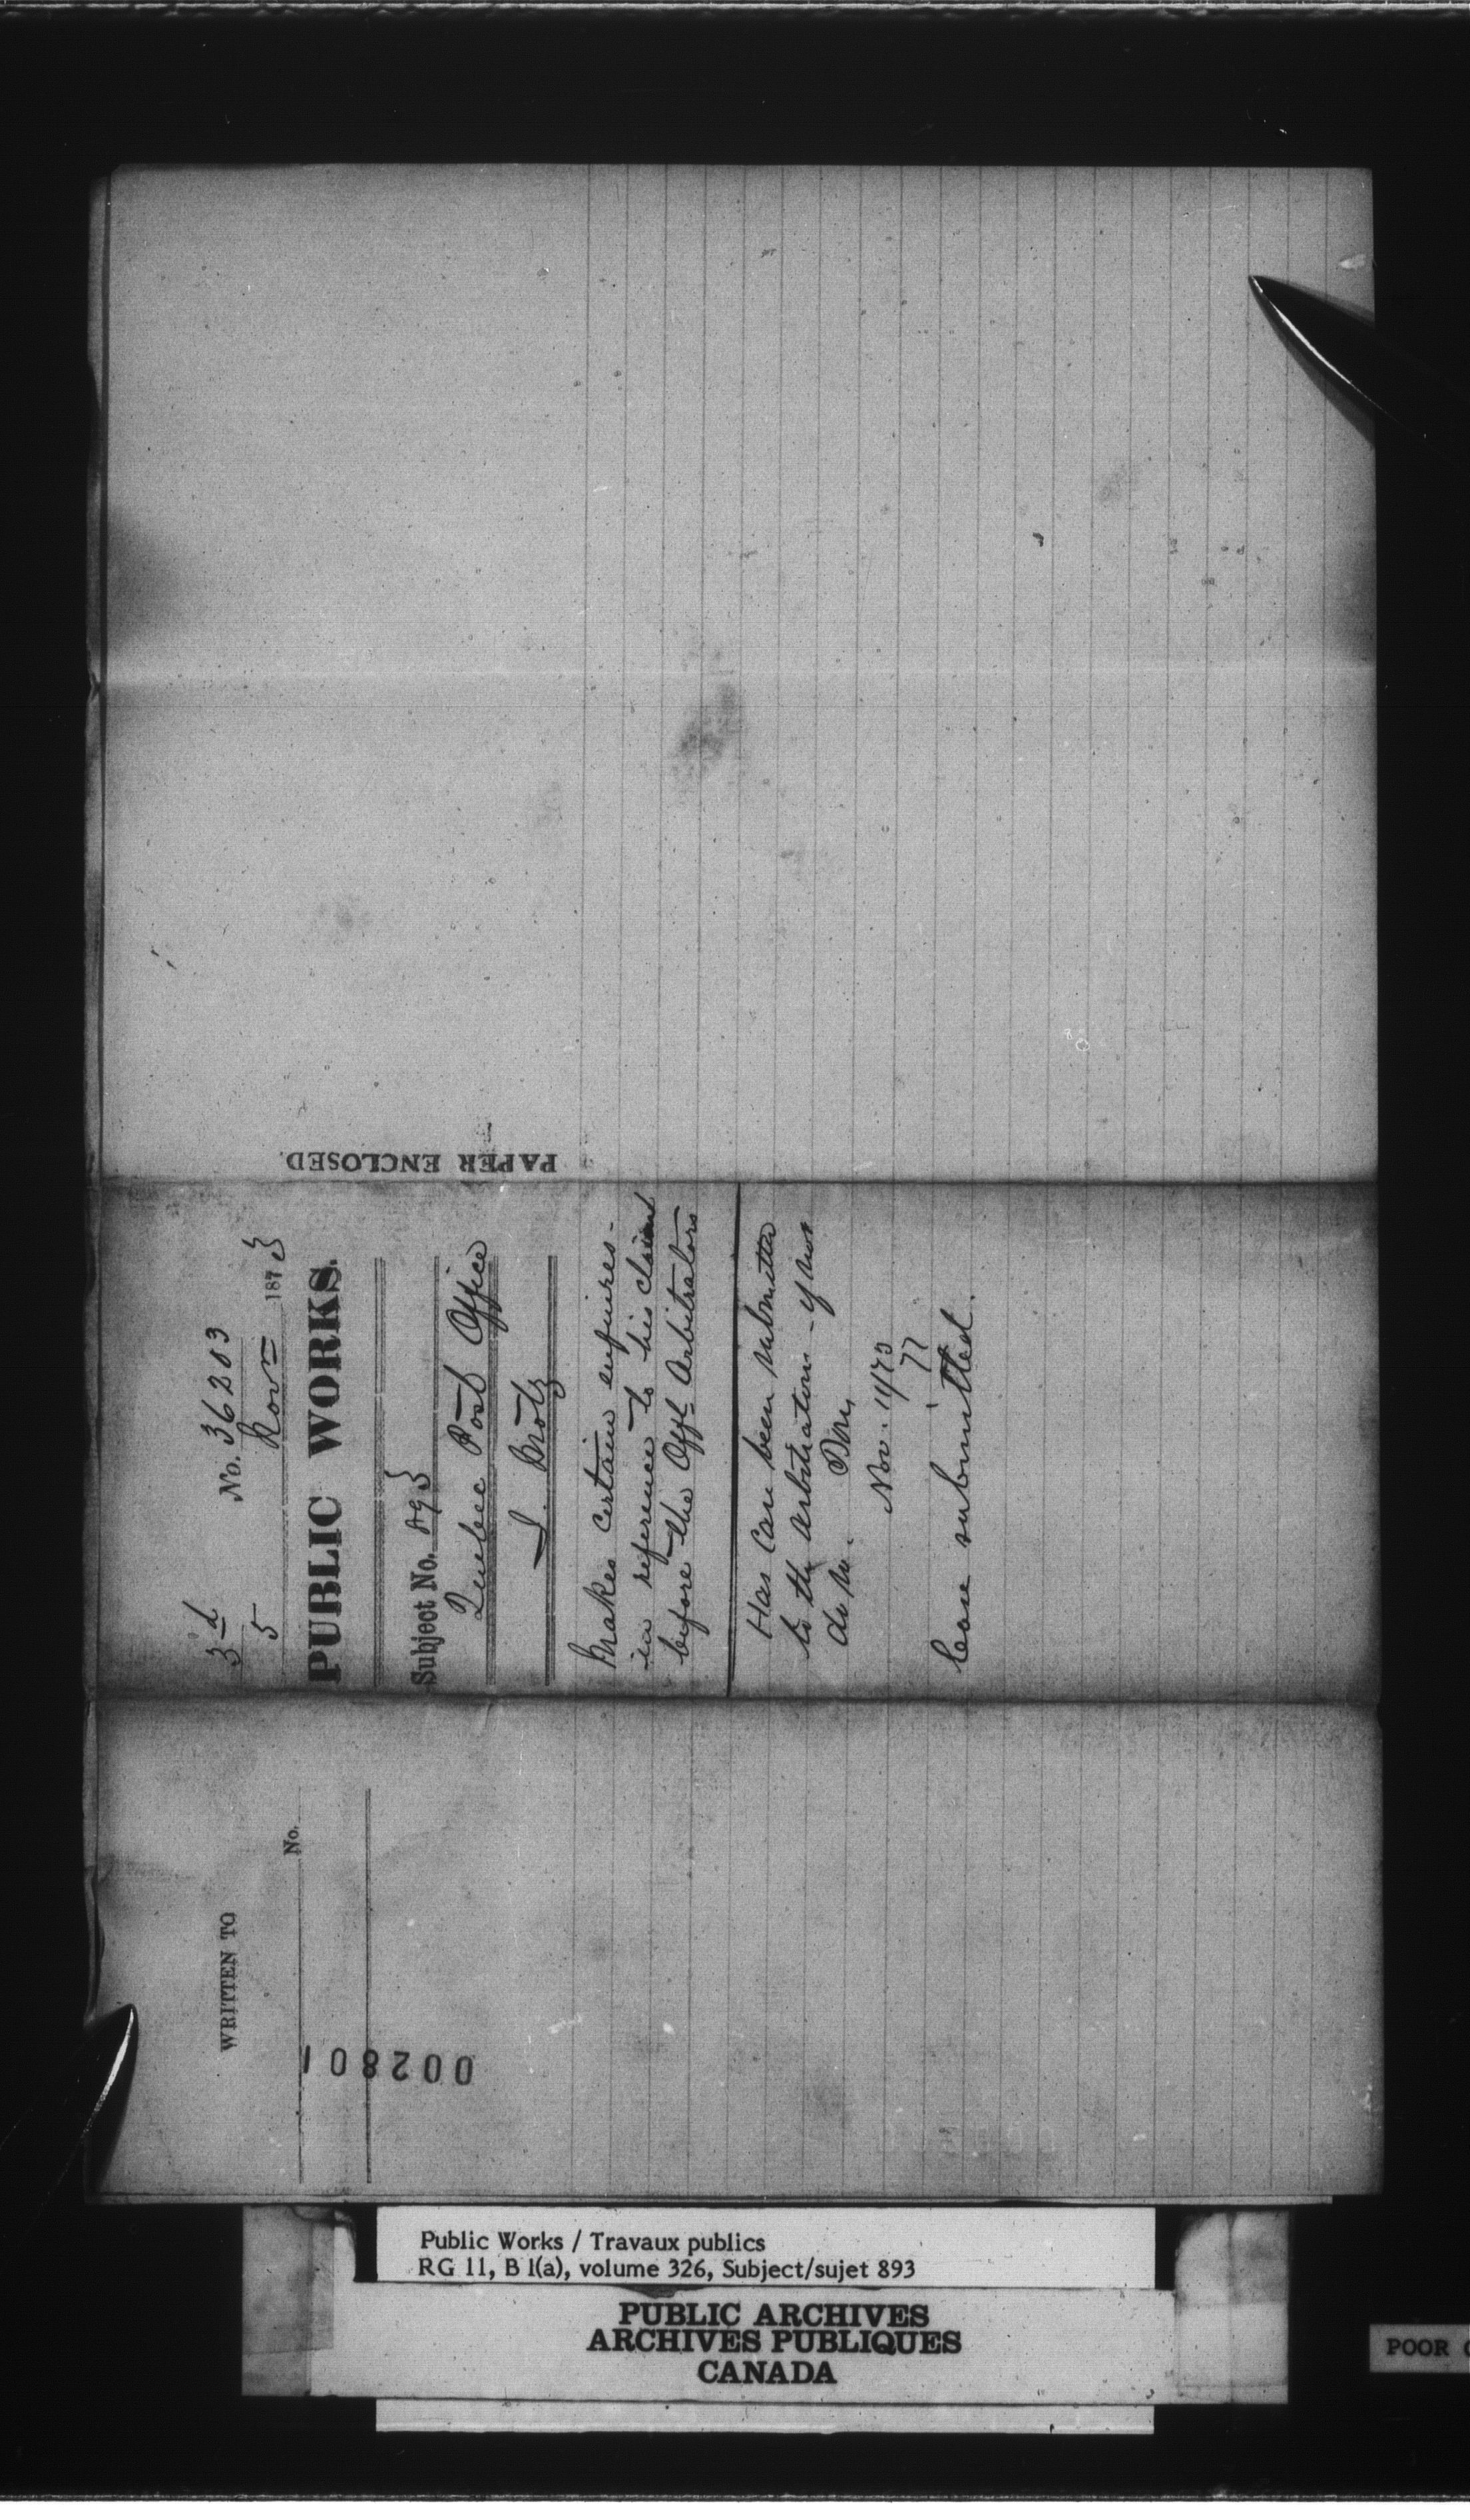 3d
No. 36203
5 Novr 1873
PUBLIC WORKS.
Subject No. 893
Quebec Post Office
Makes certain enquires
in reference to his claim
before the Offl Arbitrators
Has Case been submitted
to the Arbitrators - if not
do so.
Nov. 11/73
Case submitted.
PAPER ENCLOSED.
WRITTEN TO
No.
002801
Public Works / Travaux publics
RG 11, B 1(a), volume 326, Subject/sujet 893
PUBLIC ARCHIVES
ARCHIVES PUBLIQUES
CANADA
POOR